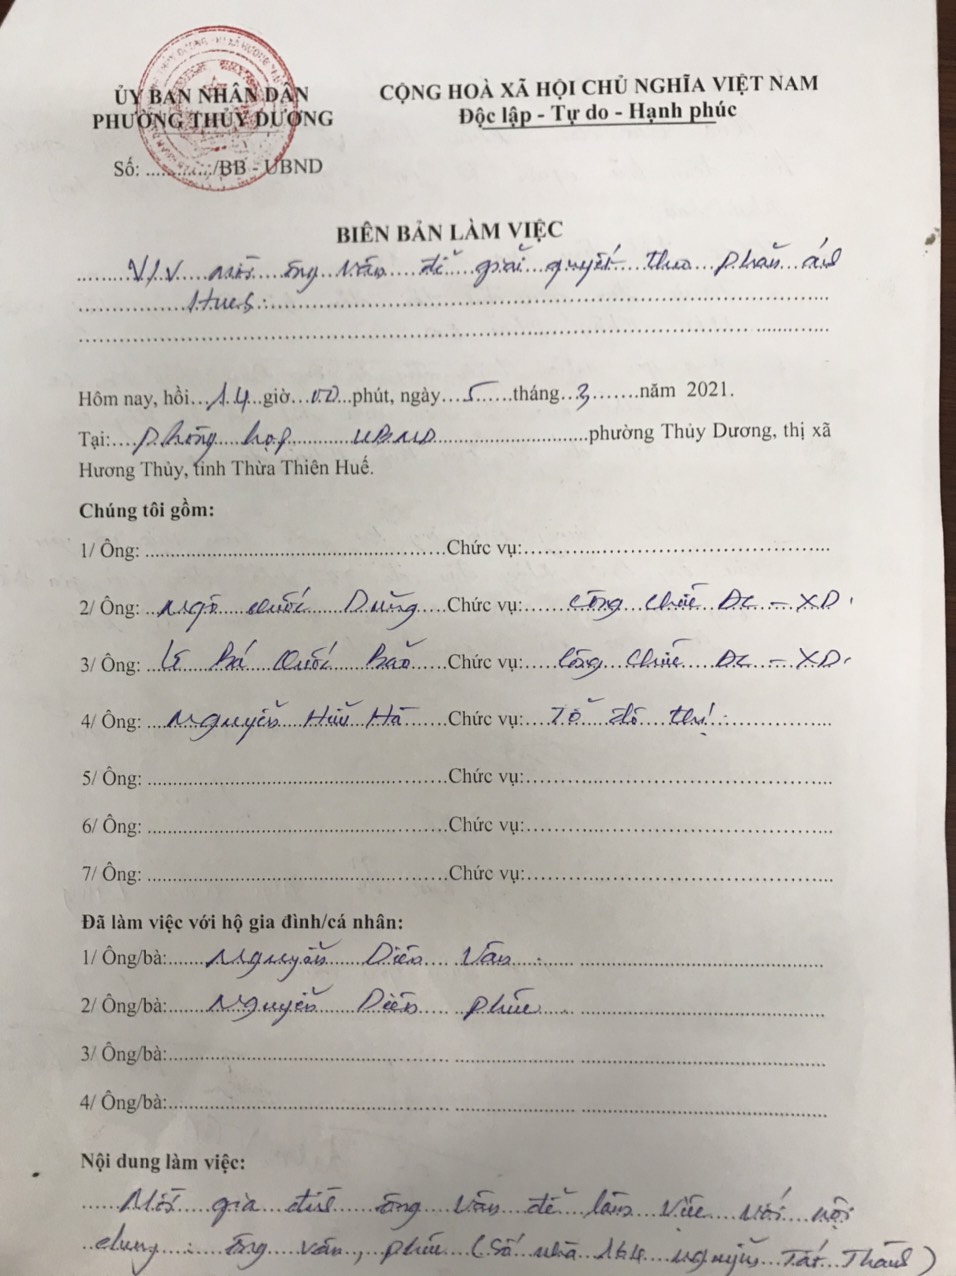 ỦY BAN NHÂN DÂN
PHƯỜNG THỦY DƯƠNG
Số: ............/BB - UBND
CỘNG HOÀ XÃ HỘI CHỦ NGHĨA VIỆT NAM
Độc lập - Tự do - Hạnh phúc
BIÊN BẢN LÀM VIỆC
V/v mời ông Vấn để giải quyết theo phản ánh
HueS
Hôm nay, hồi 14 giờ 00 phút, ngày 5 tháng 3 năm 2021.
Tại: phòng họp UBND phường Thủy Dương, thị xã
Hương Thủy, tỉnh Thừa Thiên Huế.
Chúng tôi gồm:
1/ Ông: Chức vụ:
2/ Ông: Ngô Quốc Dũng Chức vụ: Công chức ĐC - XD
3/ Ông: Lê Bá Quốc Bảo Chức vụ: Công chức ĐC - XD
4/ Ông: Nguyễn Hữu Hà Chức vụ: Tổ đô thị
5/ Ông: Chức vụ:
6/ Ông: Chức vụ:
7/ Ông: Chức vụ:
Đã làm việc với hộ gia đình/cá nhân:
1/ Ông/bà: Nguyễn Diên Vấn
2/ Ông/bà: Nguyễn Diên Phúc
3/ Ông/bà:
4/ Ông/bà:
Nội dung làm việc:
Mời gia đình ông Vấn đến làm việc với nội
dung: ông Vấn, Phúc (Số nhà 164 Nguyễn Tất Thành)